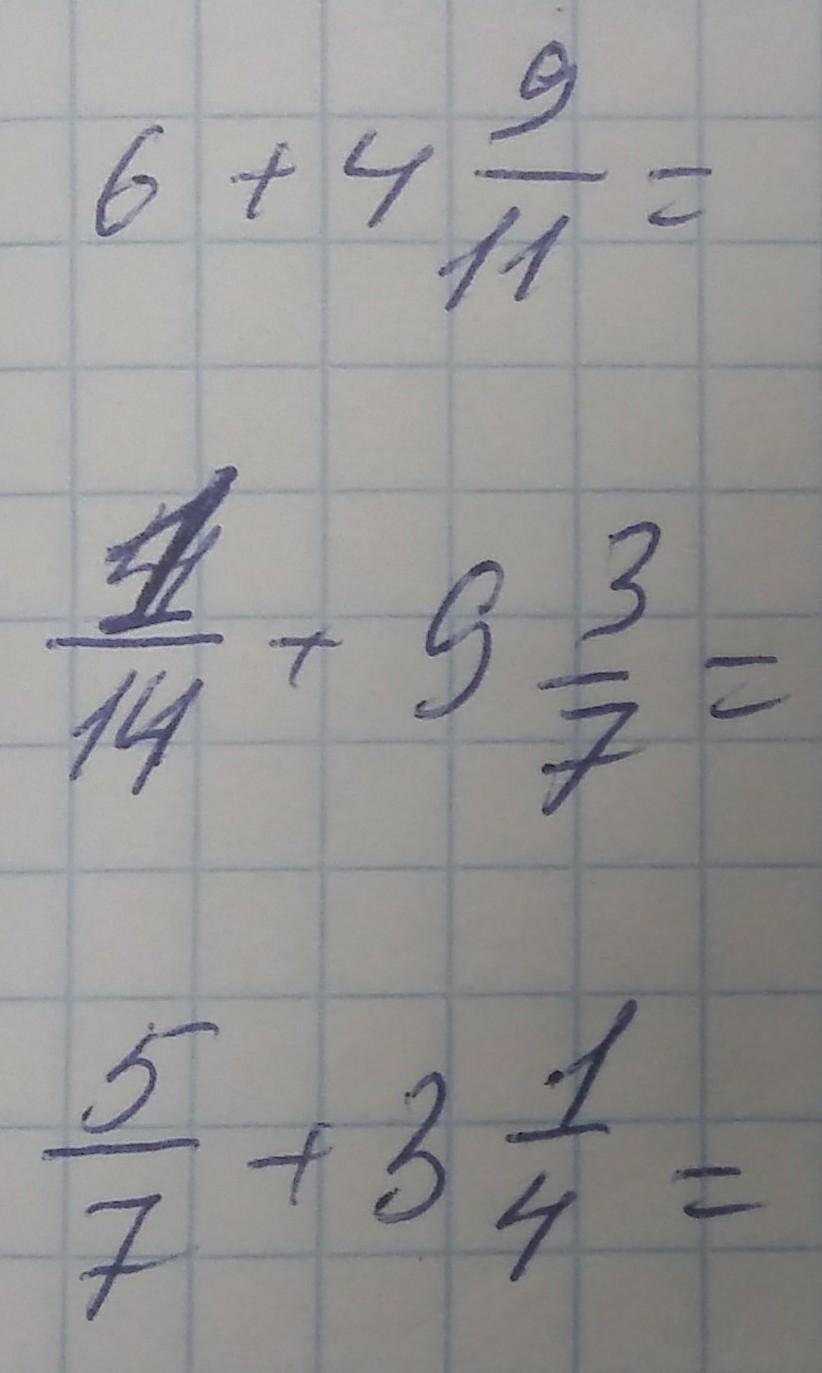 6 + 4 9/11 =
1/14 + 9 3/7 =
5/7 + 3 1/4 =